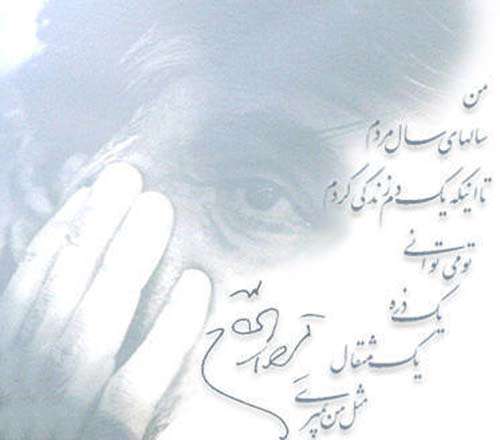 من
سالهای سال مردم
تا اینکه یک دم زندگی کردم
تو می توانی
یک ذره
یک مثقال
مثل من بمیری